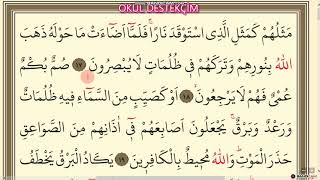 OKUL DESTEKÇİM
مَثَلُهُمْ كَمَثَلِ الَّذِى اسْتَوْقَدَ نَارًاۚ فَلَمَّٓا اَضَٓاءَتْ مَا حَوْلَهُ ذَهَبَ
اللّٰهُ بِنُورِهِمْ وَتَرَكَهُمْ ف۪ى ظُلُمَاتٍ لَا يُبْصِرُونَ ﴿١٧﴾ صُمٌّ بُكْمٌ
عُمْىٌ فَهُمْ لَا يَرْجِعُونَۙ ﴿١٨﴾ اَوْ كَصَيِّبٍ مِنَ السَّمَٓاءِ ف۪يهِ ظُلُمَاتٌ
وَرَعْدٌ وَبَرْقٌۚ يَجْعَلُونَ اَصَابِعَهُمْ ف۪ٓى اٰذَانِهِمْ مِنَ الصَّوَاعِقِ
حَذَرَ الْمَوْتِۜ وَاللّٰهُ مُح۪يطٌ بِالْكَافِر۪ينَ ﴿١٩﴾ يَكَادُ الْبَرْقُ يَخْطَفُ